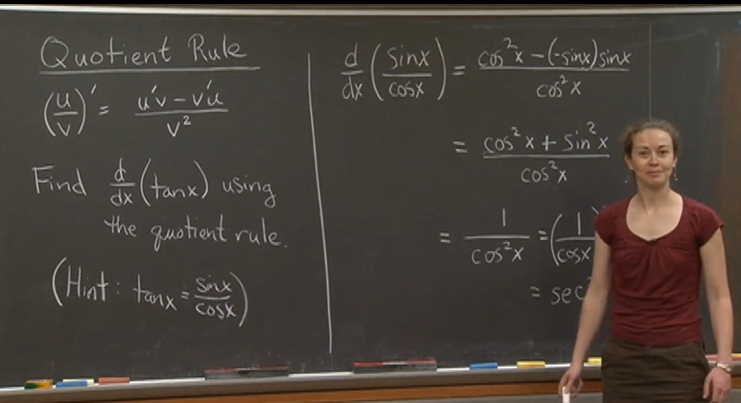 Quotient Rule
(u/v)' = (u'v - v'u)/v²
Find d/dx (tanx) using
the quotient rule.
(Hint: tanx = sinx/cosx)
d/dx (sinx/cosx) = (cos²x - (-sinx)sinx)/cos²x
= (cos²x + sin²x)/cos²x
= 1/cos²x = (1/cosx)
= sec